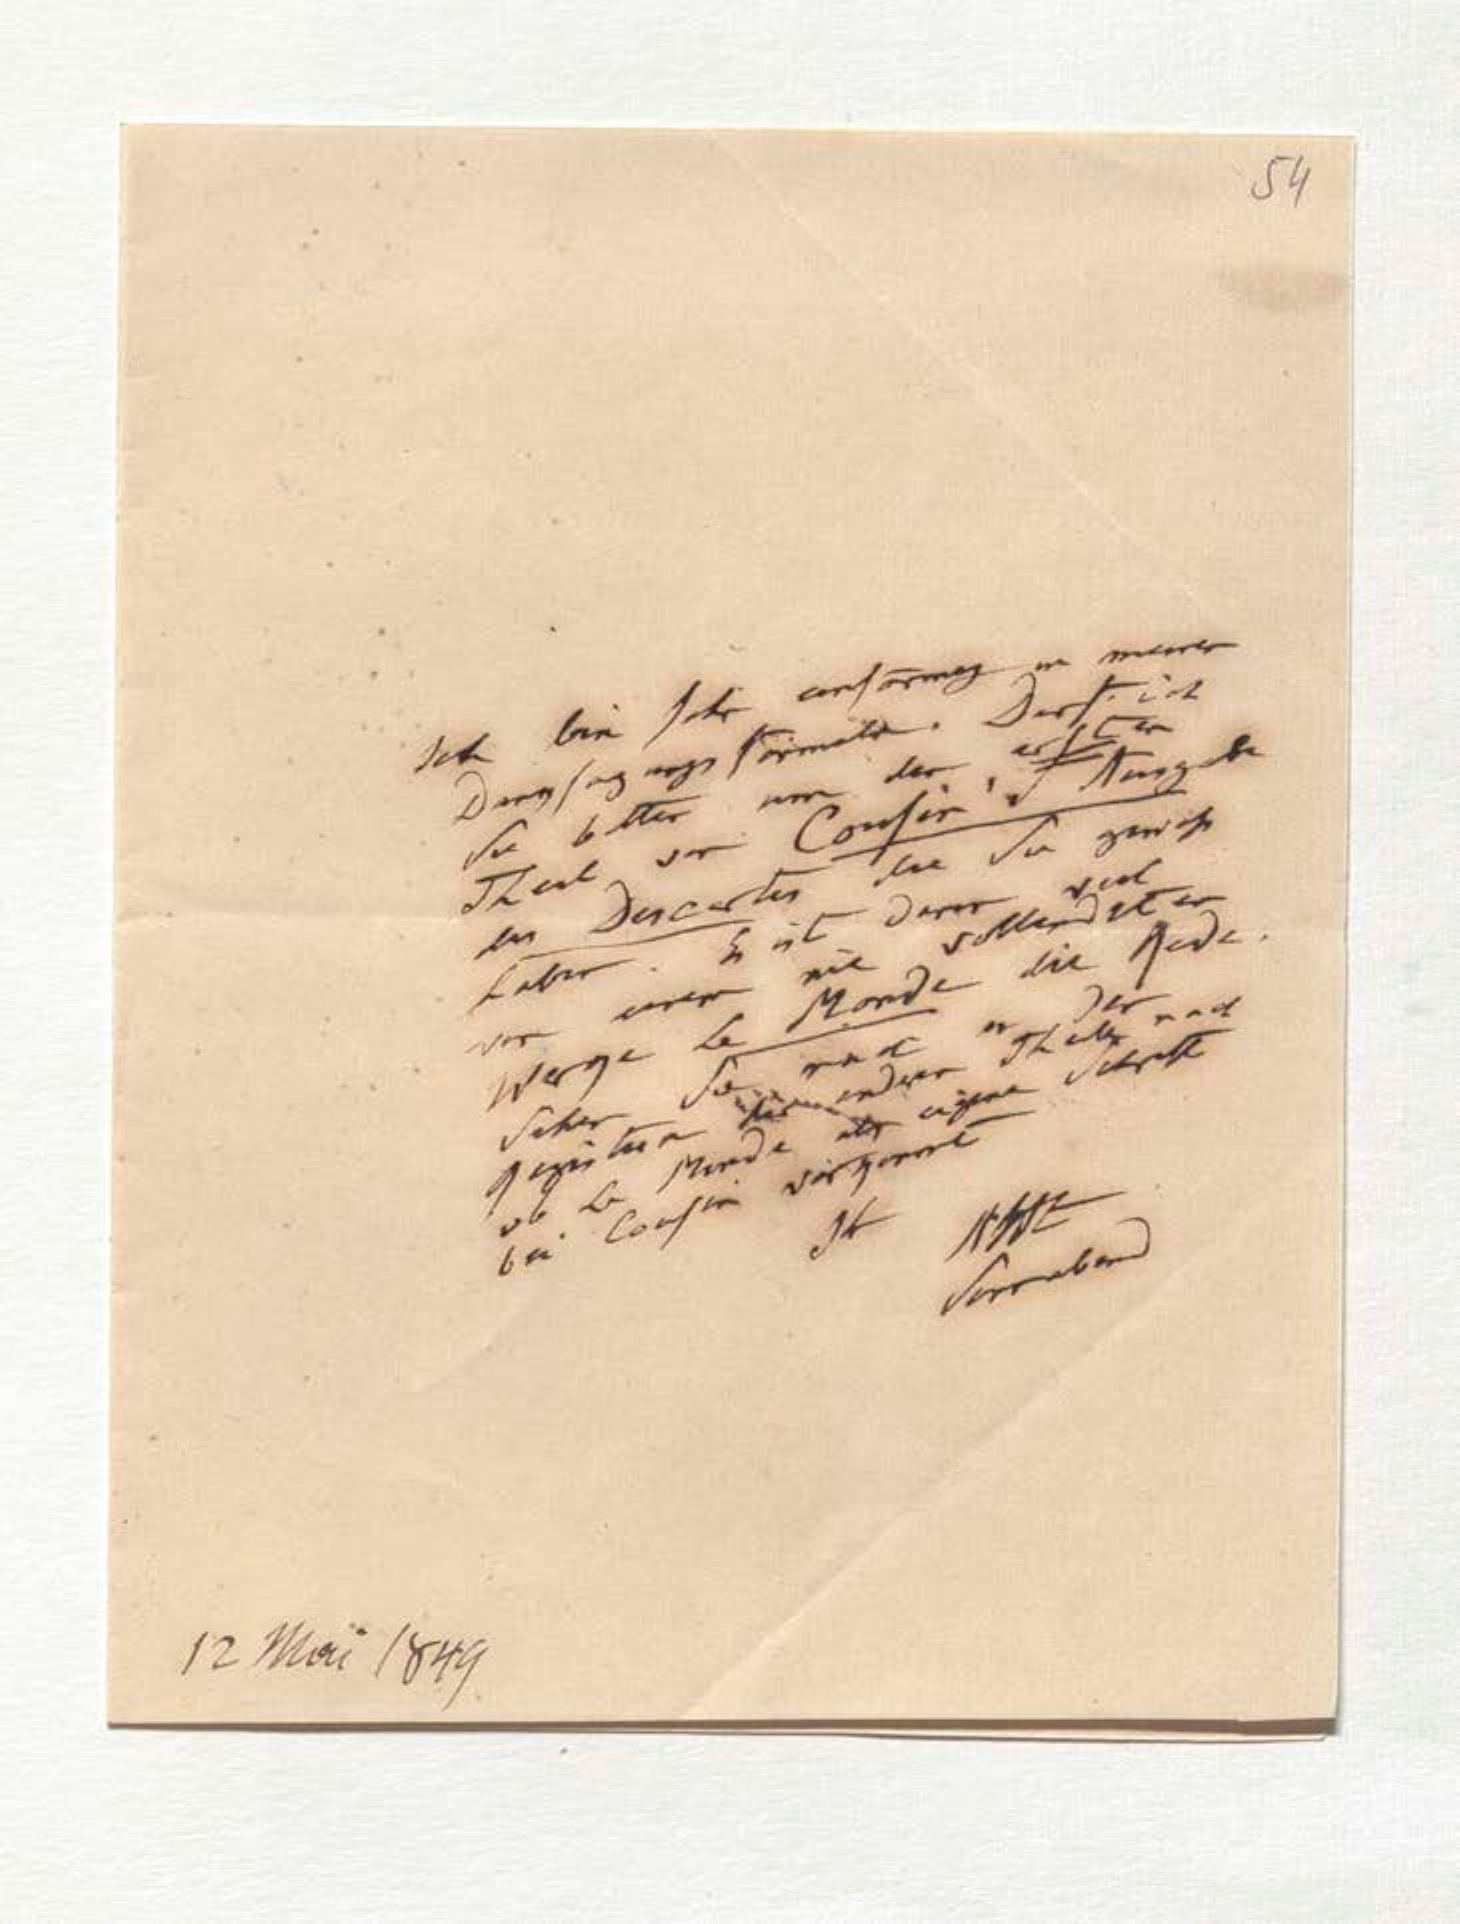 54
Ich bin sehr einförmig in meinen
Danksagungsformeln. Darf ich
Sie bitten um den ersten
Theil von Cousin's Ausgabe
des Descartes die Sie gewiss
haben. Es ist darin viel
von einem nie vollendeten
Werke Le Monde die Rede.
Sehen Sie nach in den
Registern der anderen Theile nach
ob Le Monde als eigene Schrift
bei Cousin vorkommt
Ih AHt
Sonnabend
12 Mai 1849